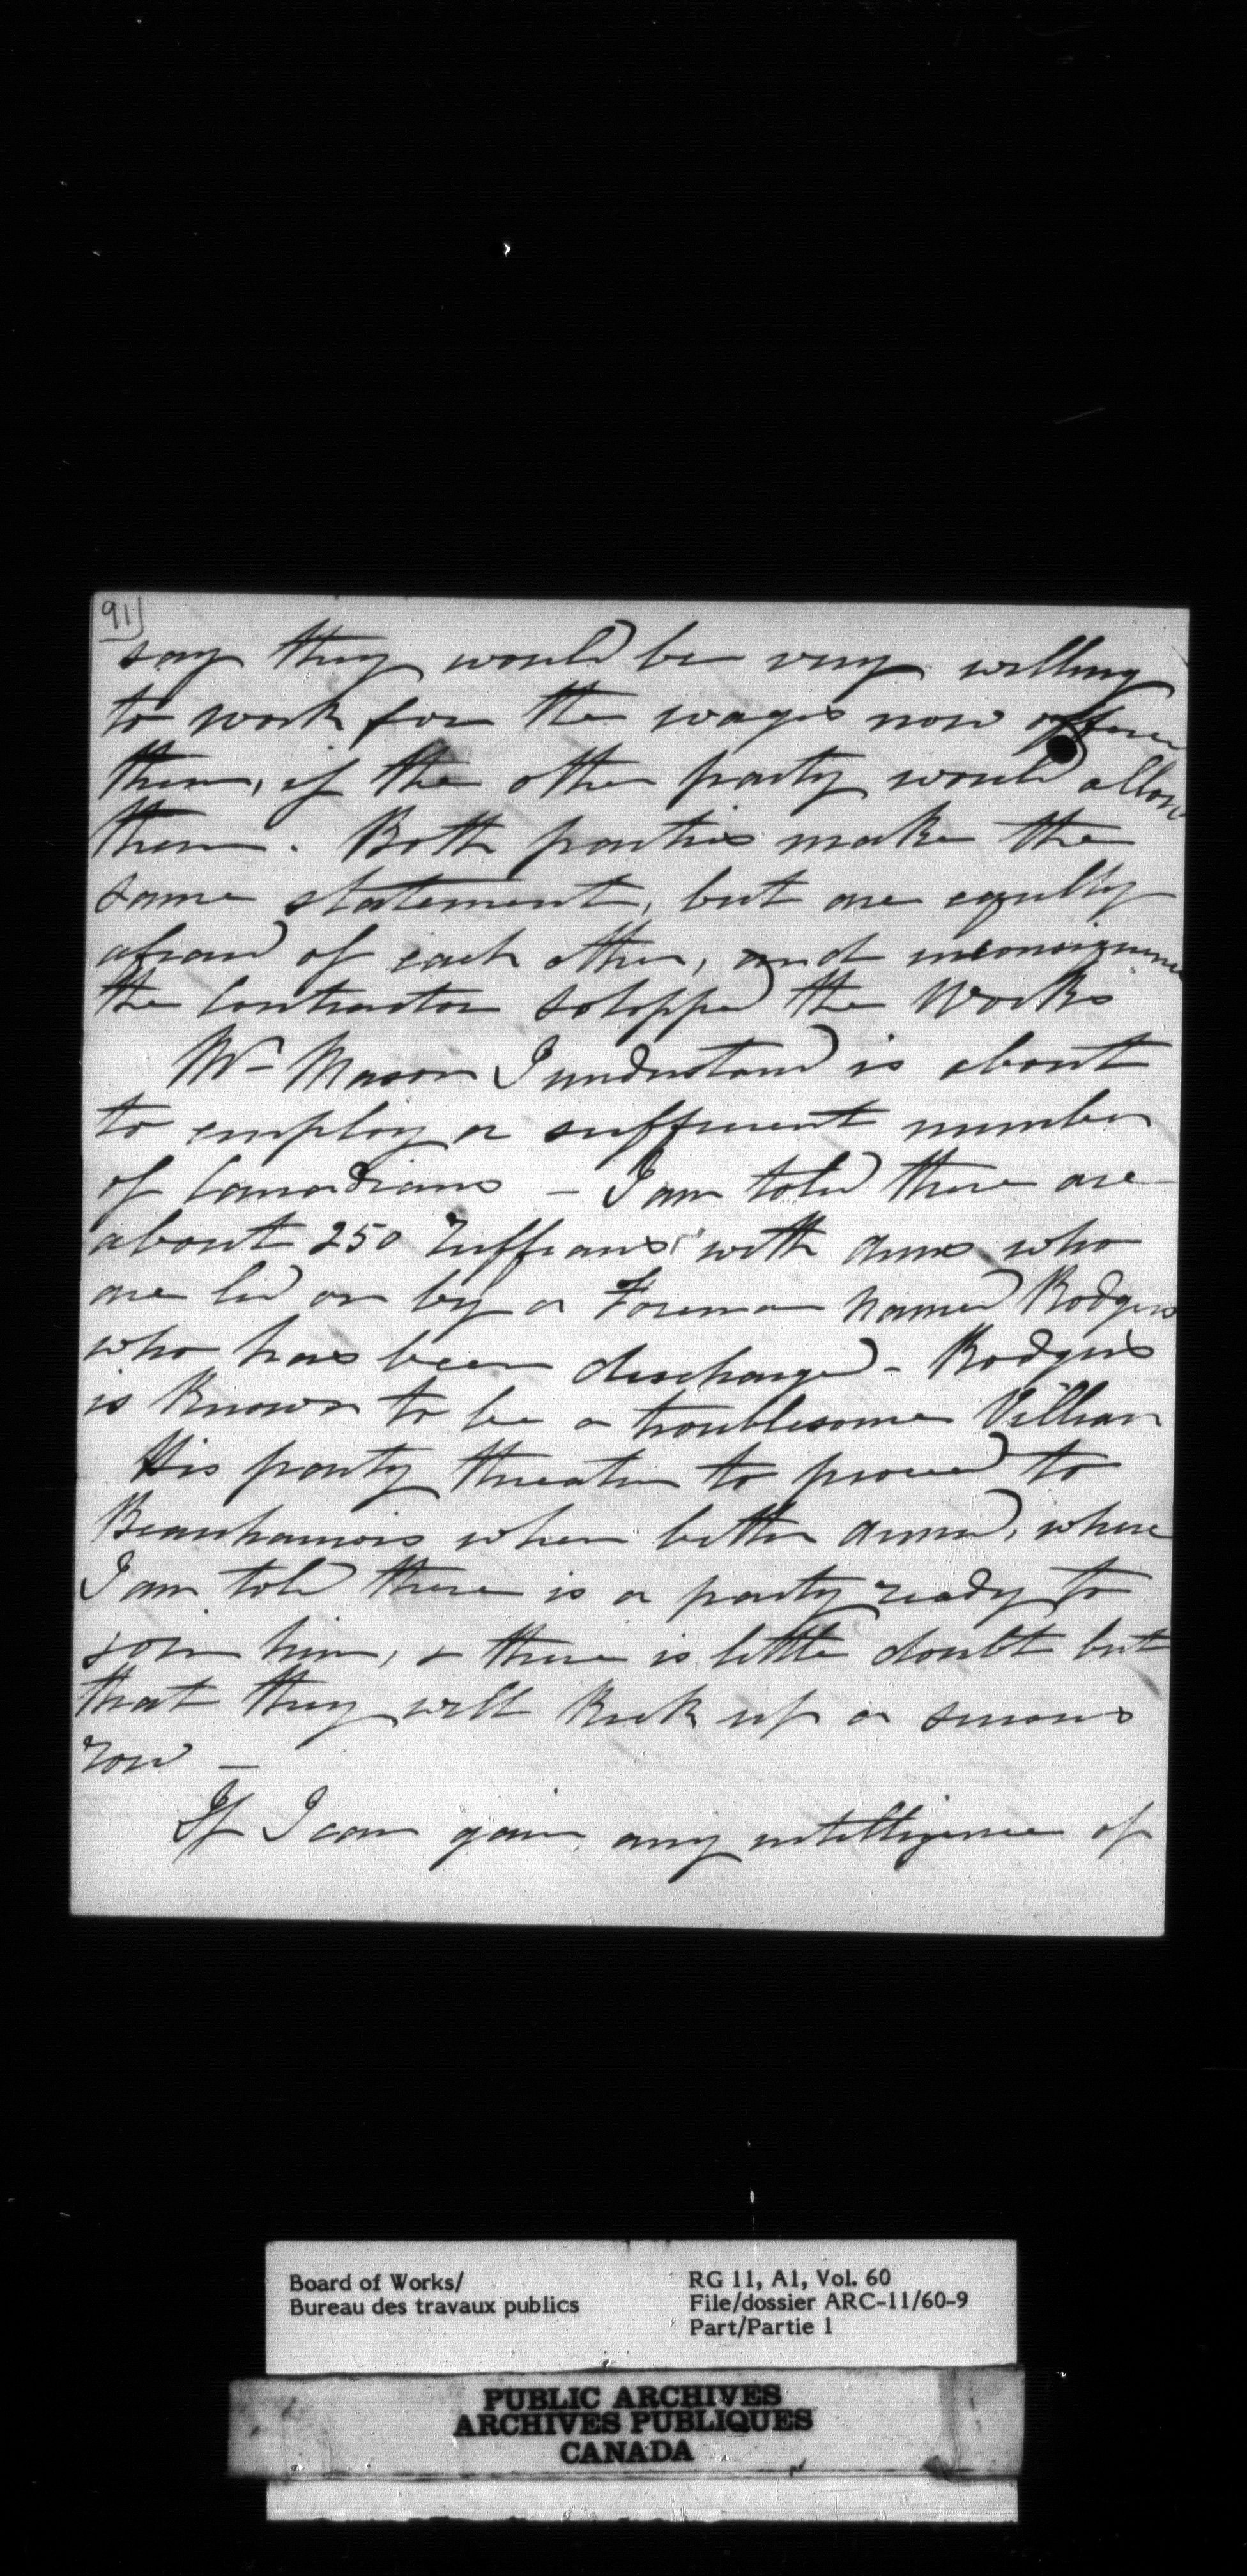 91
say they would be very willing
to work for the wages now offered
them, if the other party would allow
them. Both parties make the
same statement, but are eqully
afraid of each other, and inconsiquence
the Contractor stopped the Works
Mr Mason I understand is about
to employ a sufficient number
of Canadians - I am told there are
about 250 ruffians with arms who
are led on by a Foreman named Rodgers
who has been discharged - Rodgers
is Known to be a troublesome Villian
His party threaten to proceed to
Beauharnois when better armed, where
I am told there is a party ready to
join him, & there is little doubt but
that they will Kick up a serious
row -
If I can gain any intelligence of
Board of Works/
Bureau des travaux publics
RG 11, A1, Vol. 60
File/dossier ARC-11/60-9
Part/Partie 1
PUBLIC ARCHIVES
ARCHIVES PUBLIQUES
CANADA